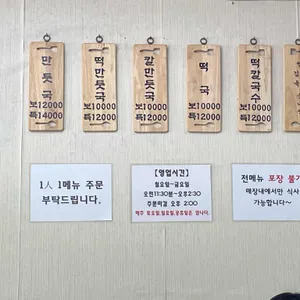 만둣국
보10000
특14000
떡만둣국
보10000
특12000
칼만둣국
보10000
특12000
떡국
보10000
특12000
떡칼국수
보10000
특12000
1人 1메뉴 주문
부탁드립니다.
【영업시간】
월요일~금요일
오전11:30분~오후2:30
주문마감 오후 2:00
매주 토요일,일요일,공휴일은 쉽니다.
전메뉴 포장
매장내에서만 식사
가능합니다~